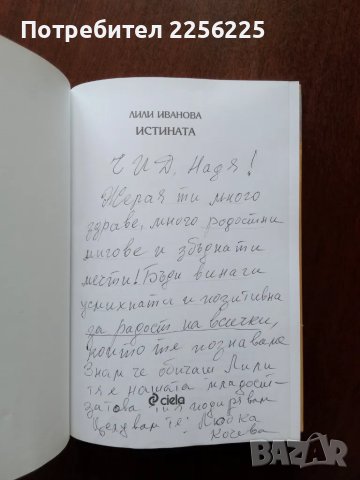 Потребител 2256225
ЛИЛИ ИВАНОВА
ИСТИНАТА
Ч И Д, Надя!
Желая ти много
здраве, много радостни
мигове и сбъднати
мечти! Бъди винаги
усмихната и позитивна
за радост на всички,
които те познаваме
Знам че обичаш Лили
тя е нашата младост-
затова ти я подарявам
Целувам те Любка
Кочева
ciela
BAZAR.BG